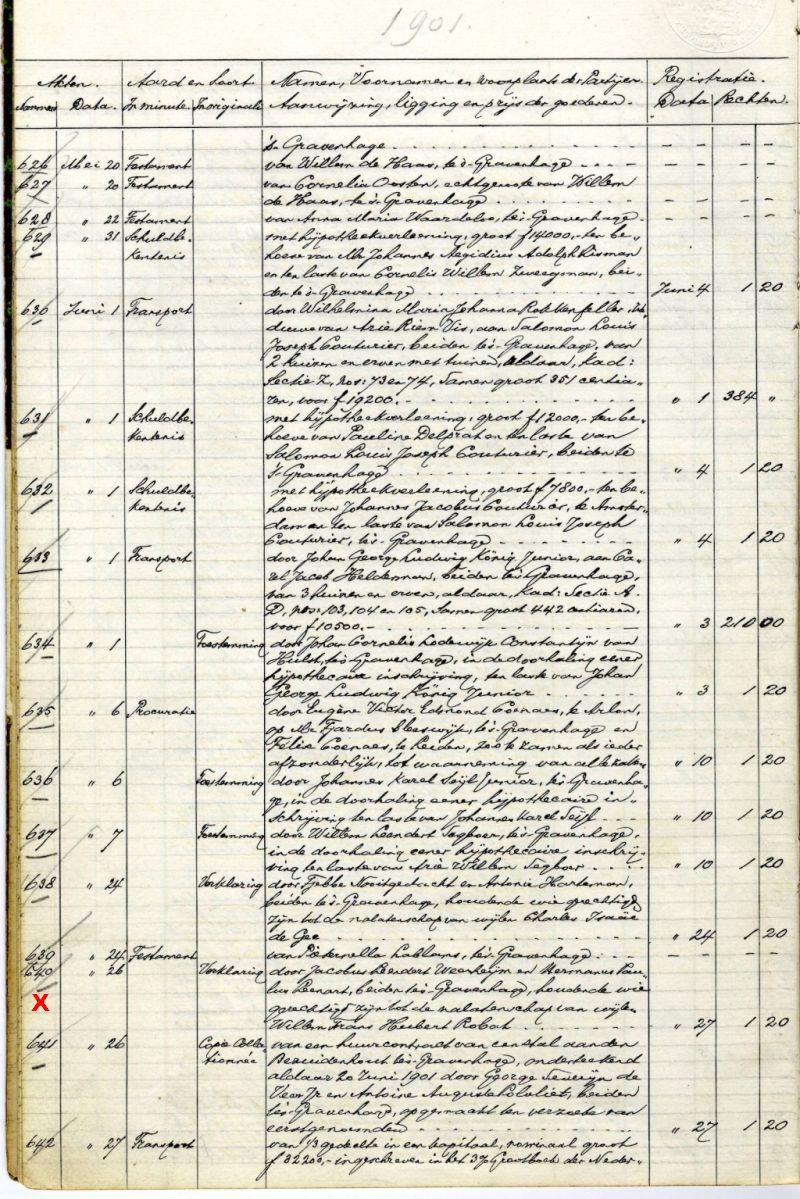 1901.
Akten. Aard en Soort Namen, Voornamen en woonplaats der Partijen. Registratie.
Nommers Data. In minute. In originali Aanwijzing, ligging en prijs der goederen. Data Rechten.
's Gravenhage - - -
626 Mei 20 Testament van Willem de Haas, te 's-Gravenhage - - -
627 " 20 Testament van Cornelia Oosten, echtgenoote van Willem
de Haas, te 's-Gravenhage - - -
628 " 22 Testament van Anna Maria Waardeloo, te 's-Gravenhage - - -
629 " 31 Schuldbe- met hypotheekverleening, groot f 14000,- ten be-
kentenis hoeve van Mr Johannes Aegidius Adolph Kisman
en ten laste van Cornelis Willem Zweegsman, bei-
den te 's-Gravenhage Juni 4 1 20
630 Juni 1 Transport door Wilhelmina Maria Johanna We-
duwe van Arie Riem Vis, aan Salomon Louis
Joseph Couturier, beiden te 's-Gravenhage, van
2 huizen en erven met tuinen, aldaar, Kad:
Sectie Z, nos: 73 en 74, samen groot 351 centia-
ren, voor f 19200,- " 1 384 "
631 " 1 Schuldbe- met hypotheekverleening, groot f 12000,- ten be-
kentenis hoeve van Pauline Delprat en ten laste van
Salomon Louis Joseph Couturier, beiden te
's-Gravenhage " 4 1 20
632 " 1 Schuldbe- met hypotheekverleening, groot f 7800,- ten be-
kentenis hoeve van Johannes Jacobus Couturier, te Amster-
dam en ten laste van Salomon Louis Joseph
Couturier, te 's-Gravenhage " 4 1 20
633 " 1 Transport door Johan George Ludwig König Junior, aan Ca-
rel Jacob Helderman, beiden te 's-Gravenhage,
van 3 huizen en erven, aldaar, Kad: Sectie A.
D, nos: 103, 104 en 105, samen groot 442 centiaren,
voor f 10500.- " 3 210 00
634 " 1 Toestemming door Johan Cornelis Lodewijk Constantijn van
Hulst, te 's-Gravenhage, in de doorhaling eener
hypothecaire inschrijving, ten laste van Johan
George Ludwig König Junior " 3 1 20
635 " 6 Procuratie door Eugène Victor Edmond Coenaes, te Arlon,
op Mr Tjardus Sleeswijk, te 's-Gravenhage en
Felix Coenaes, te Leiden, zoo te zamen als ieder
afzonderlijk, tot waarneming van alle zaken " 10 1 20
636 " 6 Toestemming door Johannes Karel Seijl Junior, te 's-Gravenha-
ge, in de doorhaling eener hypothecaire in-
schrijving ten laste van Johannes Karel Seijl " 10 1 20
637 " 7 Toestemming door Willem Leendert Segboer, te 's-Gravenhage,
in de doorhaling eener hypothecaire inschrij-
ving ten laste van Arie Willem Segboer " 10 1 20
638 " 24 Verklaring door Tjebbe Nooitgedacht en Antonie Harteman,
beiden te 's-Gravenhage, houdende wie gerechtigd
zijn tot de nalatenschap van wijlen Charles Isaäc
de Gee " 24 1 20
639 " 24 Testament van Pieternella Lablans, te 's-Gravenhage - - -
640 " 26 Verklaring door Jacobus Leendert Weerheijm en Hermanus Pau-
lus Leenart, beiden te 's-Gravenhage, houdende wie
X gerechtigd zijn tot de nalatenschap van wijlen
Willem Frans Hubert Robat " 27 1 20
641 " 26 Copie Colla- van een huurcontract van een stal aan den
tionnée Bezuidenhout te 's-Gravenhage, onderteekend
aldaar 20 Juni 1901 door George Severijn de
Veer Jr en Antoine Auguste beiden
te 's-Gravenhage, opgemaakt ten verzoeke van
eerstgenoemden " 27 1 20
642 " 27 Transport van 1/3 gedeelte in een kapitaal, nominaal groot
f 32200,- ingeschreven in het 3% Grootboek der Neder-